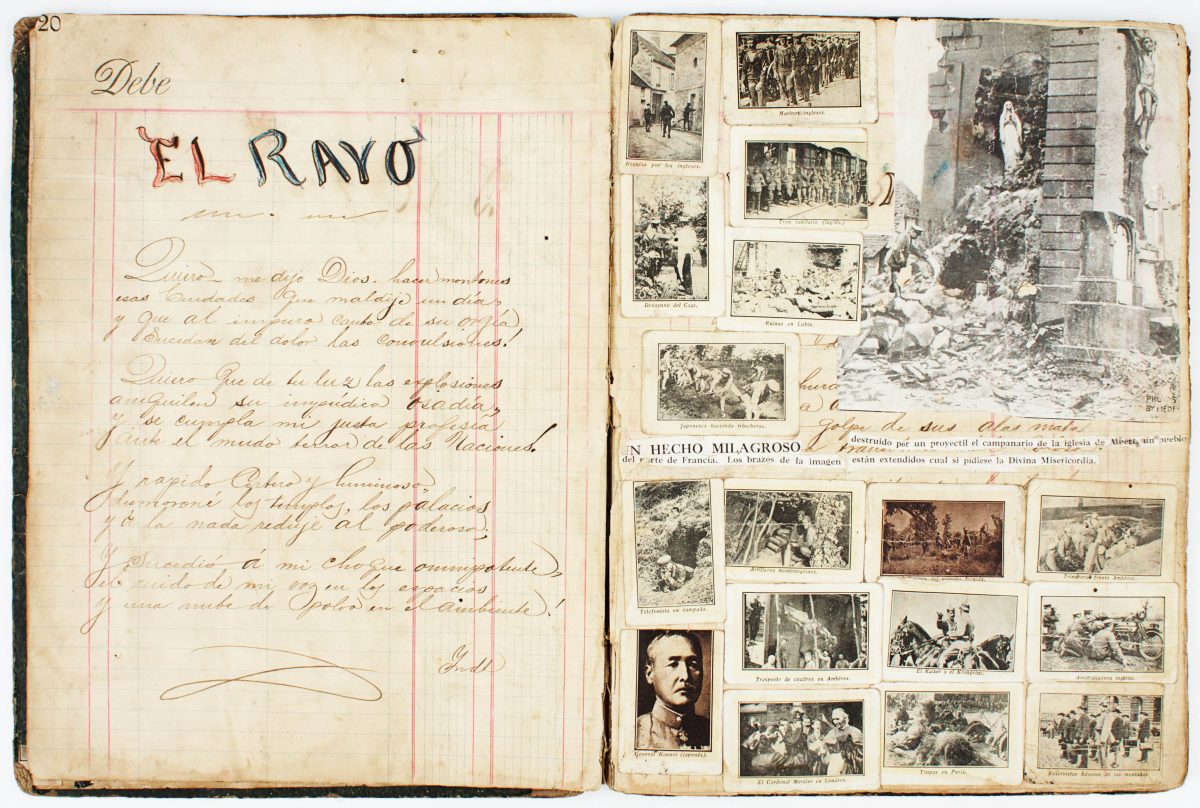 20
Debe
EL RAYO
Quiero me dijo Dios hacer montones
esas Ciudades que maldije un día,
y que al impuro canto de su orgía
Sucedan del dolor las convulsiones!
Quiero que de tu luz las explosiones
aniquilen su impúdica osadía,
y se cumpla mi justa profesía
ante el mudo terror de las Naciones.
Y rapido Certero y luminoso
desmoroné los templos, los palacios
y á la nada reduje al poderoso;
Y Sucedió á mi choque omnipotente,
el ruido de mi voz en los espacios
y una nube de polvo en el ambiente!
Requisa por los ingleses.
Marinos ingleses.
Tren sanitario (inglés.)
Desayuno del Czar.
Ruinas en Lublin.
Japoneses haciendo trincheras.
PHO S
BY MEDE
golpe de sus alas mata
N HECHO MILAGROSO
destruido por un proyectil el campanario de la iglesia de Albert, un pueblo
del norte de Francia. Los brazos de la imagen
están extendidos cual si pidiese la Divina Misericordia.
Telefonista en campaña.
Artilleros montenegrinos.
Trincheras frente Amberes.
Trasporte de cuadros en Ambéres.
El Kaiser y el Kronprinz.
Ametralladora inglesa.
General Kamor (japonés)
El Cardenal Mercier en Londres.
Tropas en París.
Reservistas bávaros de las montañas.